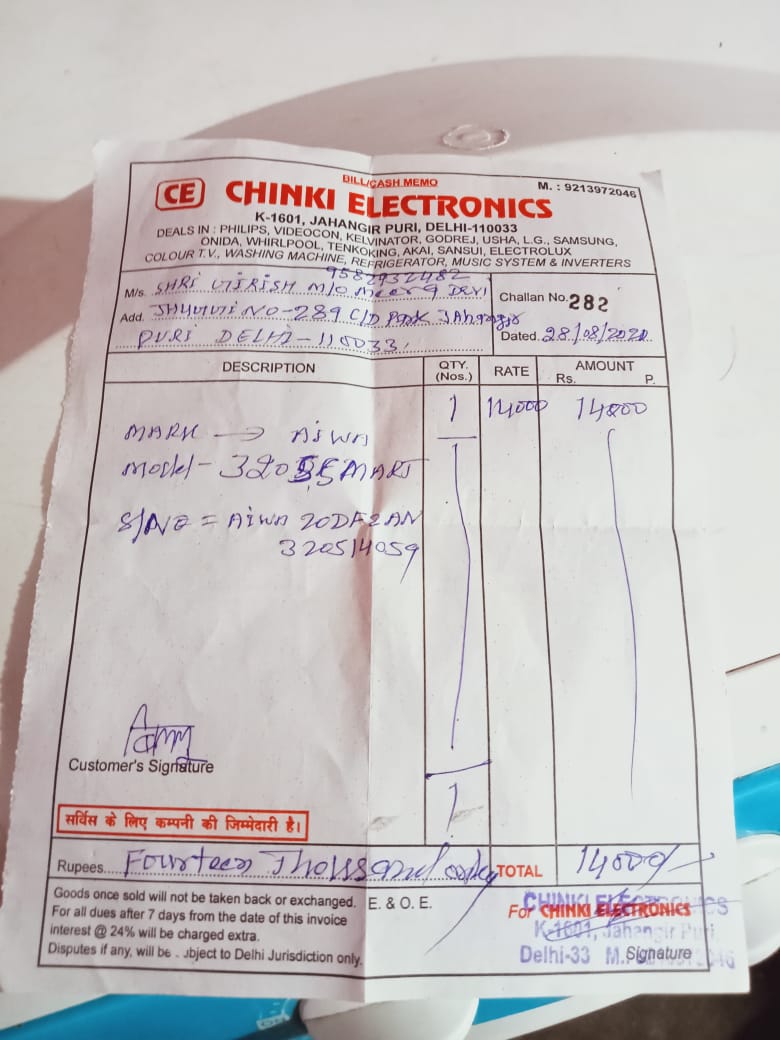 BILL/CASH MEMO
M. : 9213972046
CE CHINKI ELECTRONICS
K-1601, JAHANGIR PURI, DELHI-110033
DEALS IN : PHILIPS, VIDEOCON, KELVINATOR, GODREJ, USHA, L.G., SAMSUNG,
ONIDA, WHIRLPOOL, TENKOKING, AKAI, SANSUI, ELECTROLUX
COLOUR T.V., WASHING MACHINE, REFRIGERATOR, MUSIC SYSTEM & INVERTERS
9582932482
M/s. SHRI M/O DEVI
Challan No. 282
Add. NO-289 C/D
PURI DELHI-110033.
Dated. 28/08/2021
DESCRIPTION QTY. (Nos.) RATE AMOUNT Rs. P.
1 14000 14000
MARK → AiWA
Model- 320 SMART
S/NO = AiWA 20DF2AN
320514059
Customer's Signature
1
सर्विस के लिए कम्पनी की जिम्मेदारी है।
Rupees... Fourteen Thousand only TOTAL 14000/-
Goods once sold will not be taken back or exchanged.
E. & O. E.
For all dues after 7 days from the date of this invoice
interest @ 24% will be charged extra.
Disputes if any, will be subject to Delhi Jurisdiction only.
For CHINKI ELECTRONICS
CHINKI ELECTRONICS
K-1601, Jahangir Puri,
Delhi-33 M.
Signature